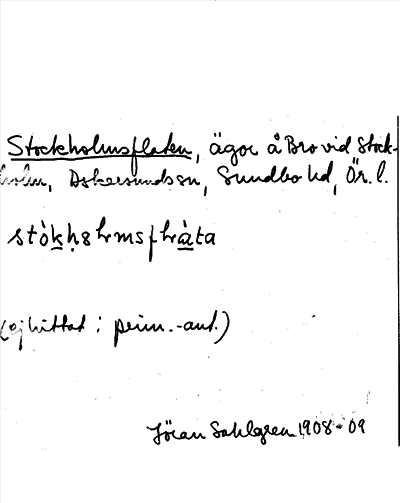 Stockholmsflaten, ägor å Bro vid Stock-
holm, Askersunds sn, Sundbo hd, Ör. l.
(ej hittat i prim.-ant.)
Jöran Sahlgren 1908-09